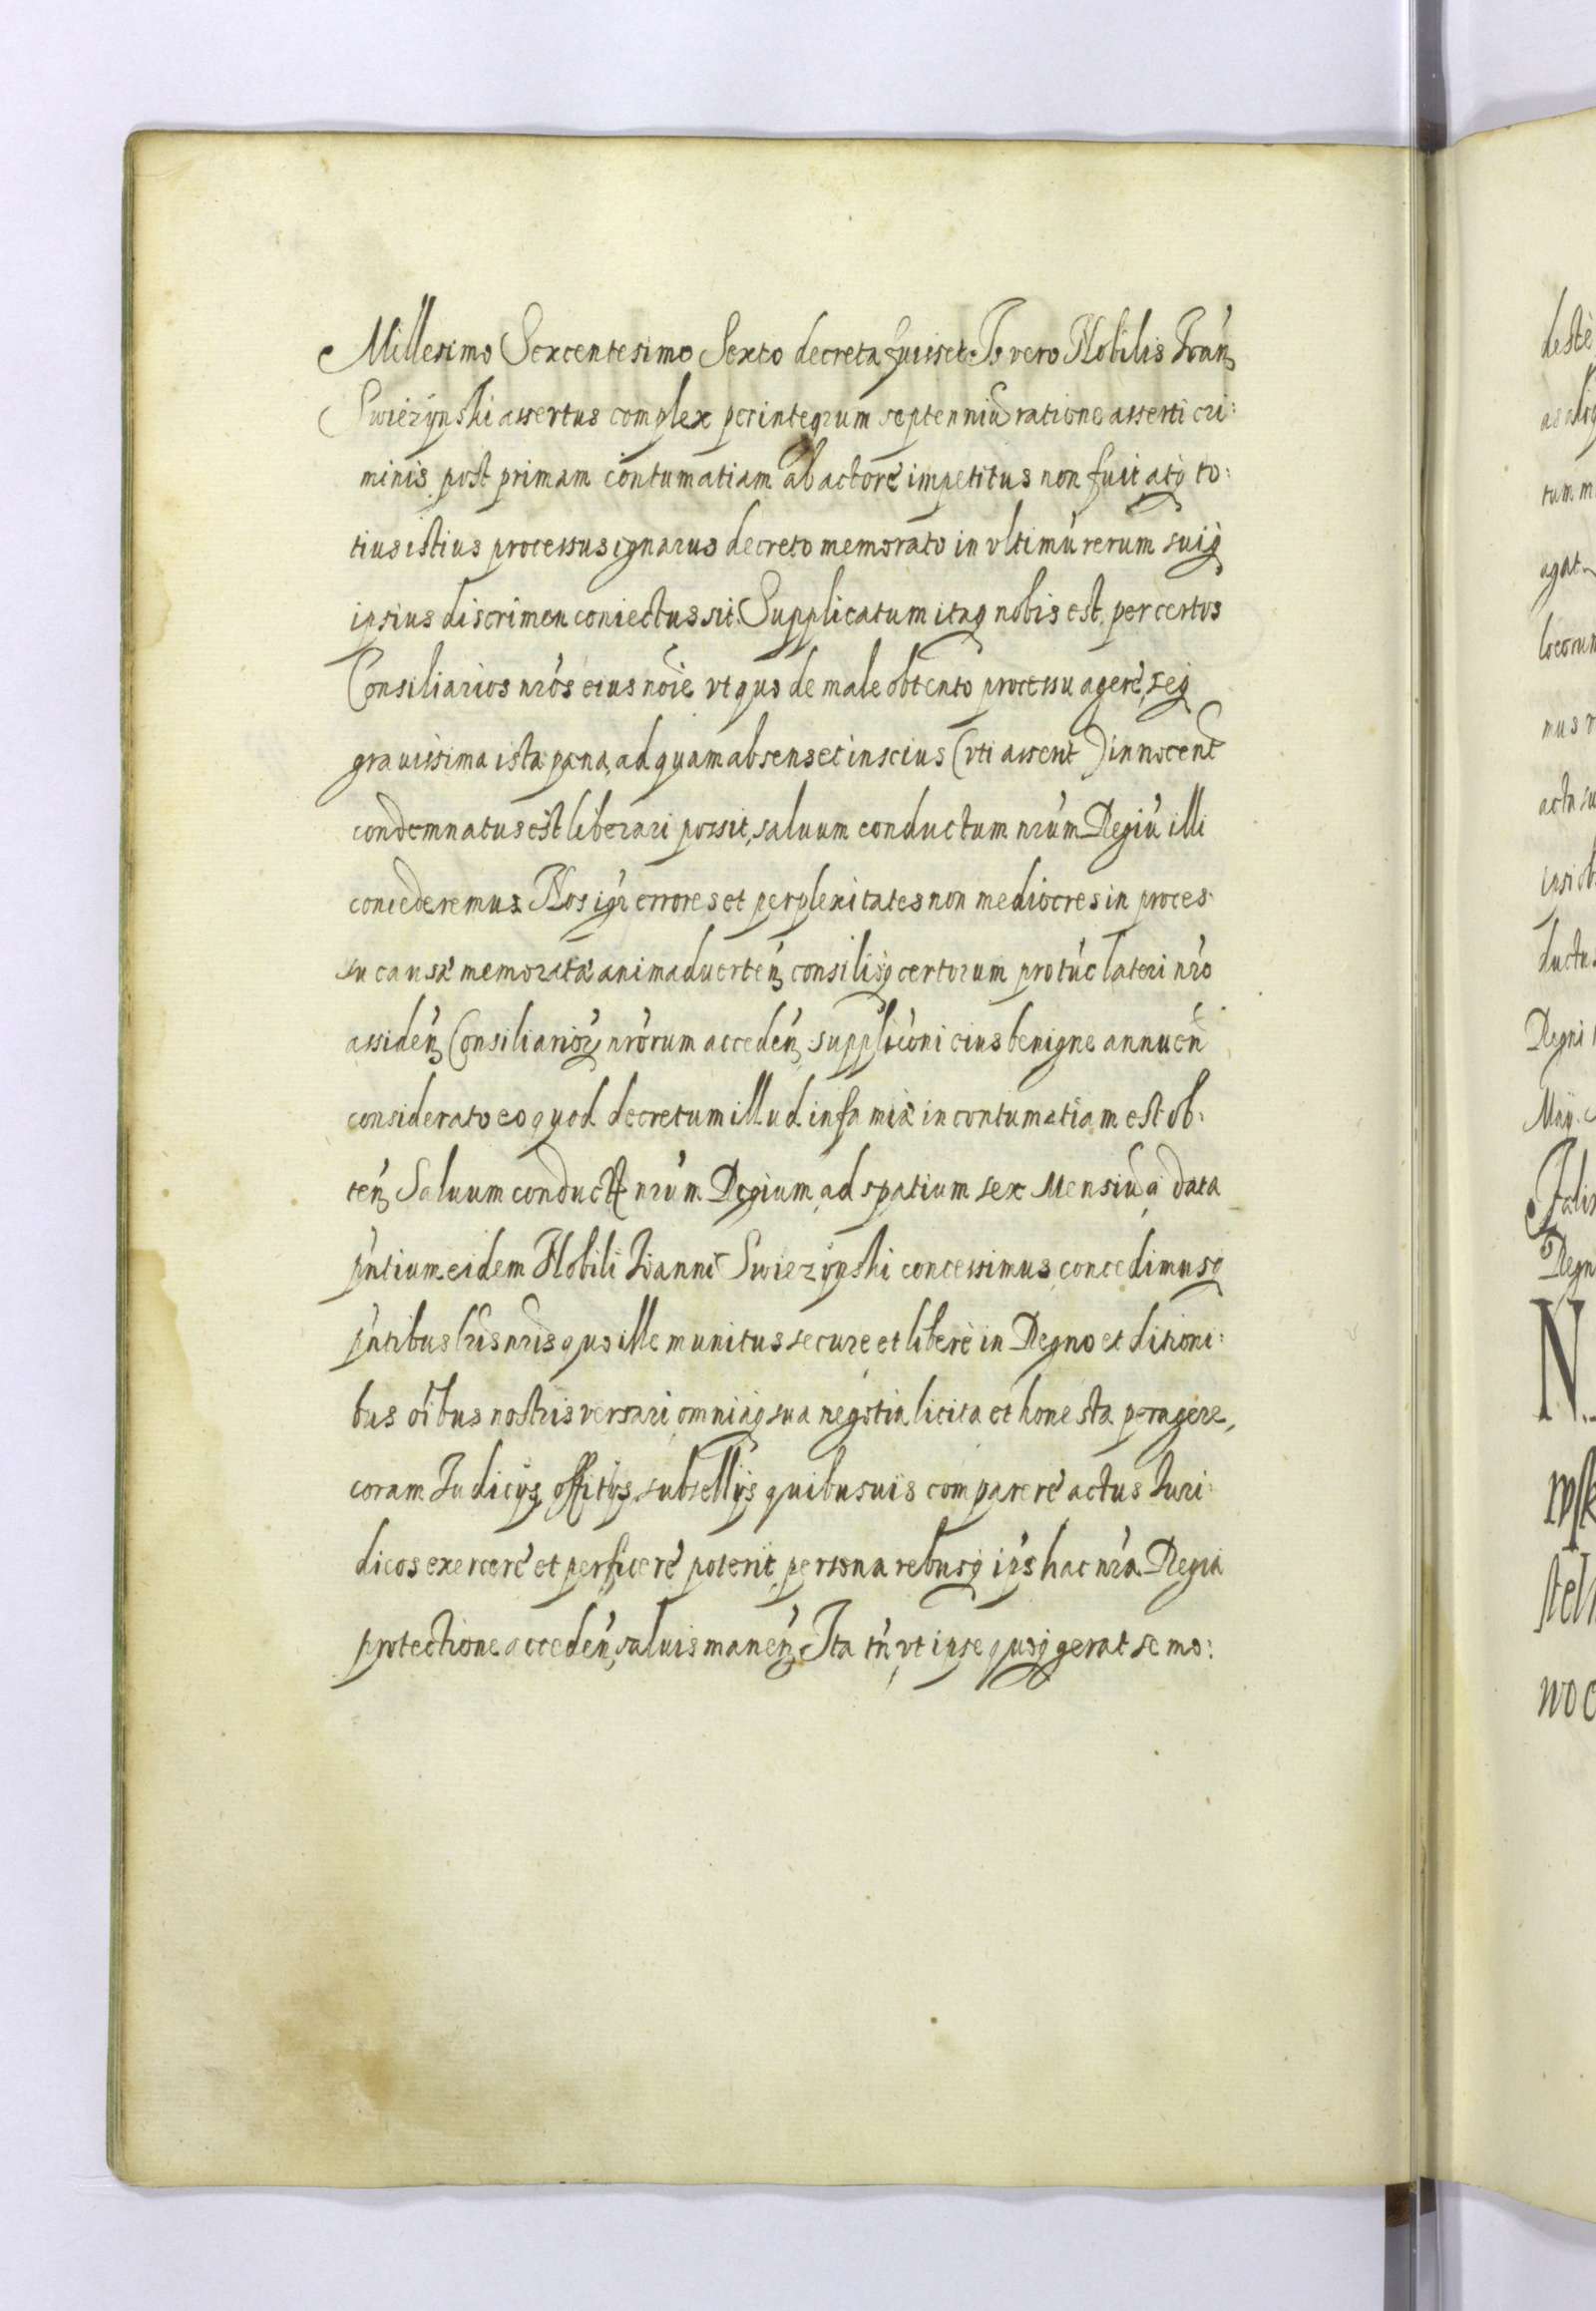 Millesimo Sexcentesimo Sexto decreta fuisset. Is vero Nobilis Ioan̄
Swiezÿnski assertus complex per integrum septenniū ratione asserti cri:
minis post primam contumatiam ab actore impetitus non fuit atq to:
tius istius processus ignarus decreto memorato in vltimū rerum suiq
ipsius discrimen coniectus sit. Supplicatum itaq nobis est per certos
Consiliarios nr̄os eius noīe vt quo de male obtento processu agere, seq
grauissima ista pæna, ad quam absens et inscius (vti asserit) innocent
condemnatus est liberari possit, saluum conductum nr̄um Regiū illi
concederemus. Nos igr̄ errores et perplexitates non mediocres in proces
su causæ memoratæ animaduerten̄ consilijsq certorum pro tūc lateri nr̄o
assiden̄ Consiliarior̄ nr̄orum acceden̄ supplicōni eius benigne annuen̄
considerato eo quod decretum illud infamiæ in contumatiam est ob:
ten̄ Saluum conduct nr̄um Regium, ad spatium sex Mensiū a data
pn̄tium eidem Nobili Ioanni Swiezÿnski concessimus, concedimusq
pn̄tibus lr̄is nr̄is quo ille munitus secure et libere in Regno et ditioni:
bus oībus nostris versari, omniaq sua negotia licita et honesta peragere,
coram Iudicijs, offitijs, subsellijs quibusuis comparere actus Iuri:
dicos exercere et perficere poterit, persona rebusq ip̄s hac nr̄a Regia
protectione acceden̄, saluis manen̄. Ita tn̄ vt ipse quoq gerat se mo:
deste
tum m
agat
locorum
mus
actu
ductu
Regni
Maij
N